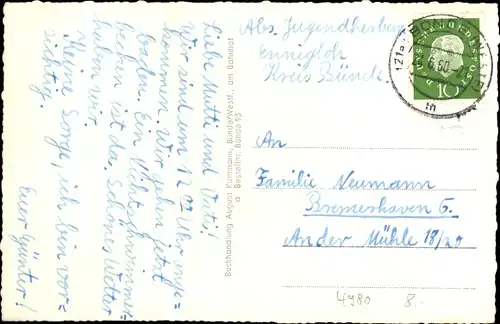 Liebe Mutti und Vati!
Wir sind um 12 02 Uhr ange-
kommen. Wir gehen jetzt
baden. Ein Nichtschwimmer-
becken ist da. Schönes Wetter
haben wir.
Meine Sorge, ich bin vor-
sichtig.
Euer Günter!
Buchhandlung August Kortmann, Bünde/Westf., am Bahnhof
Bestellnr. Bünde 95
Abs. Jugendherberge
Ennigloh
Kreis Bünde
DEUTSCHE BUNDESPOST
10
(21a) BÜNDE (WESTF)
.6.60
m
An
Familie Neumann
Bremerhaven G.
An der Mühle 18/20
4980 8.-